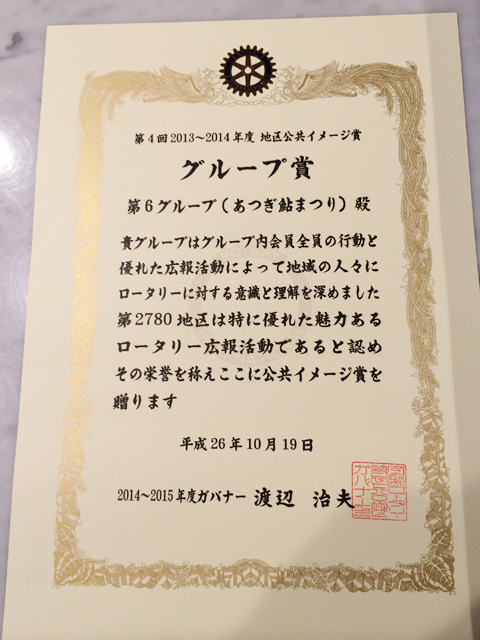 第4回2013～2014年度 地区公共イメージ賞
グループ賞
第6グループ(あつぎ鮎まつり) 殿
貴グループはグループ内会員全員の行動と
優れた広報活動によって地域の人々に
ロータリーに対する意識と理解を深めました
第2780地区は特に優れた魅力ある
ロータリー広報活動であると認め
その栄誉を称えここに公共イメージ賞を
贈ります
平成26年10月19日
2014～2015年度ガバナー 渡辺 治夫